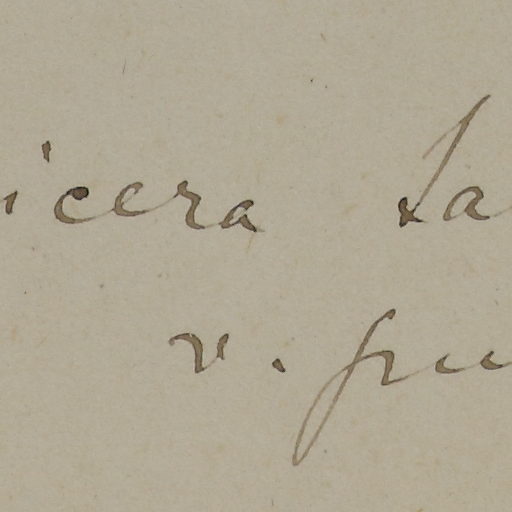 icera ta
v. fru